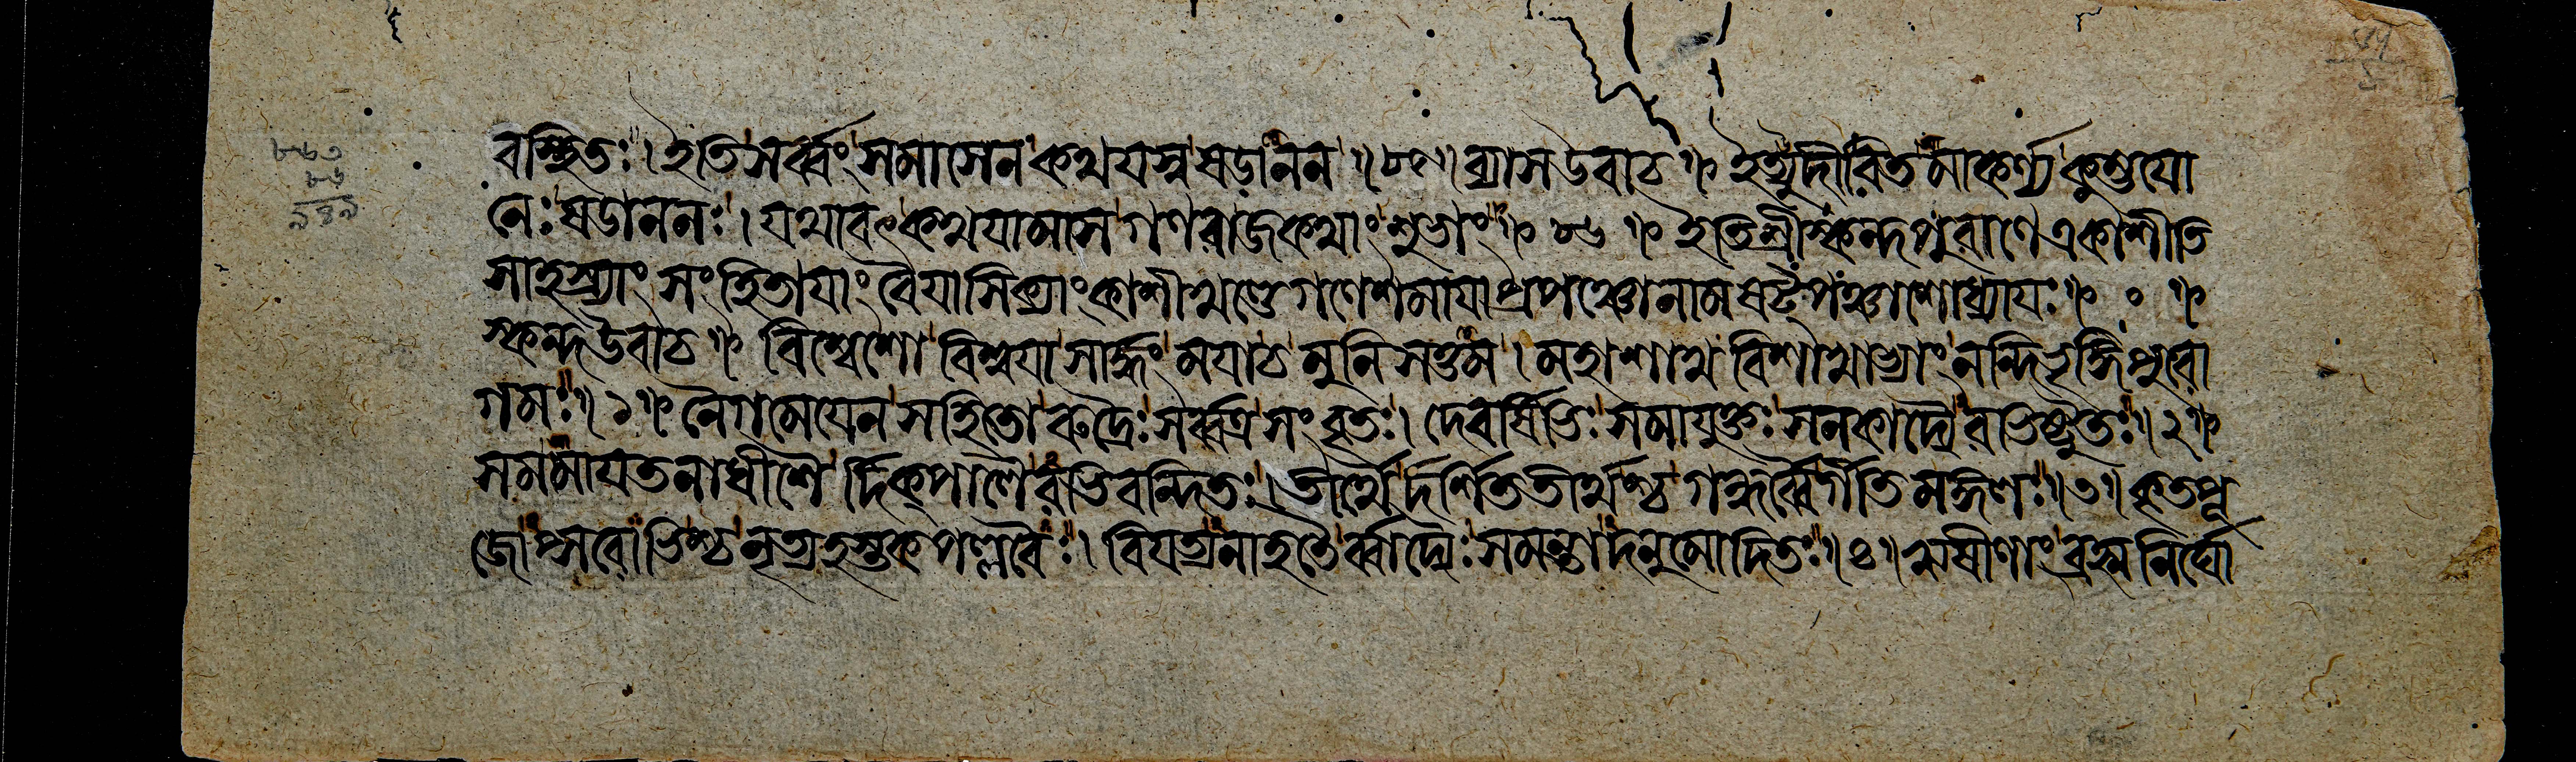 বস্থিতঃ। ইতি সর্ব্বং সমাসেন কথযস্ব ষডানন॥৮৫॥ ব্যাস উবাচ॥ ইত্যুদীরিতমাকর্ণ্য কুম্ভযো
নেঃ ষডাননঃ। যথাবৎ কথযামাস গণরাজকথাং শুভাং॥ ৮৬॥ ইতি শ্রীস্কন্দপুরাণে একাশীতি
সাহস্র্যাং সংহিতাযাং বৈযাসিক্যাং কাশীখণ্ডে গণেশমাযাপ্রপঞ্চো নাম ষট্পঞ্চাশোধ্যাযঃ॥ ০ ॥
স্কন্দ উবাচ॥ বিশ্বেশো বিশ্বযা সার্দ্ধং মযাচ মুনিসত্তম। মহাশাখ বিশাখাভ্যাং নন্দিভৃঙ্গিপুরো
গমঃ॥১॥ নৈগমেযেন সহিতো রুদ্রৈঃ সর্ব্বত্র সংবৃতঃ। দেবর্ষিভিঃ সমাযুক্তঃ সনকাদ্যৈরভিষ্টুতঃ॥২॥
সমমাযতনাধীশৈ র্দিক্পালৈরভিবন্দিতঃ। তীর্থৈর্দর্শিততীর্থশ্চ গন্ধর্ব্বৈর্গীতমঙ্গলঃ॥৩॥ কৃতপূ
জোপ্সরোভিশ্চ নৃত্যহস্তকপল্লবৈঃ। বিযত্যনাহতৈর্ব্বাদ্যৈঃ সমন্তাদনুমোদিতঃ॥৪॥ ঋষীণাং ব্রহ্মনির্ঘো